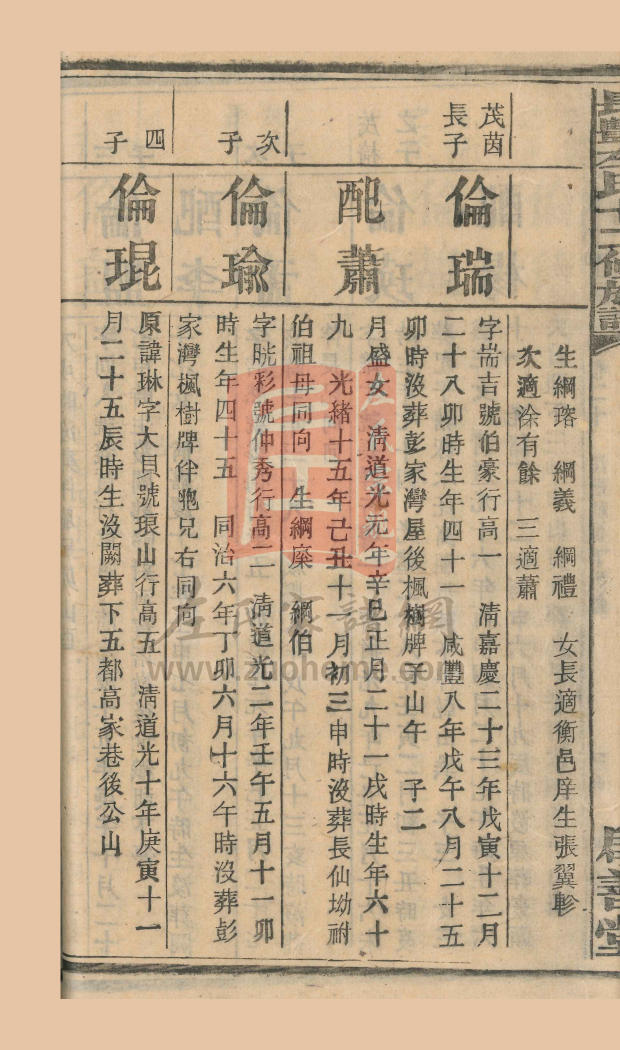 生綱瑢　綱義　綱禮　女長適衡邑庠生張翼軫
次適涂有餘　三適蕭
茂茵長子
倫瑞
字耑吉號伯豪行高一　淸嘉慶二十三年戊寅十二月
二十八卯時生年四十一　咸豐八年戊午八月二十五
卯時沒葬彭家灣屋後楓樹牌子山午　子二
配蕭
月盛女　淸道光元年辛巳正月二十一戌時生年六十
九　光緒十五年己丑十一月初三申時沒葬長仙坳祔
伯祖母同向　生綱糜　綱伯
次子
倫瑜
字晄彩號仲秀行高二　淸道光二年壬午五月十一卯
時生年四十五　同治六年丁卯六月十六午時沒葬彭
家灣楓樹牌伴兄右同向
四子
倫琨
原諱琳字大貝號琅山行高五　淸道光十年庚寅十一
月二十五辰時生沒闕葬下五都高家巷後公山
左氏家譜網
www.zuohome.com